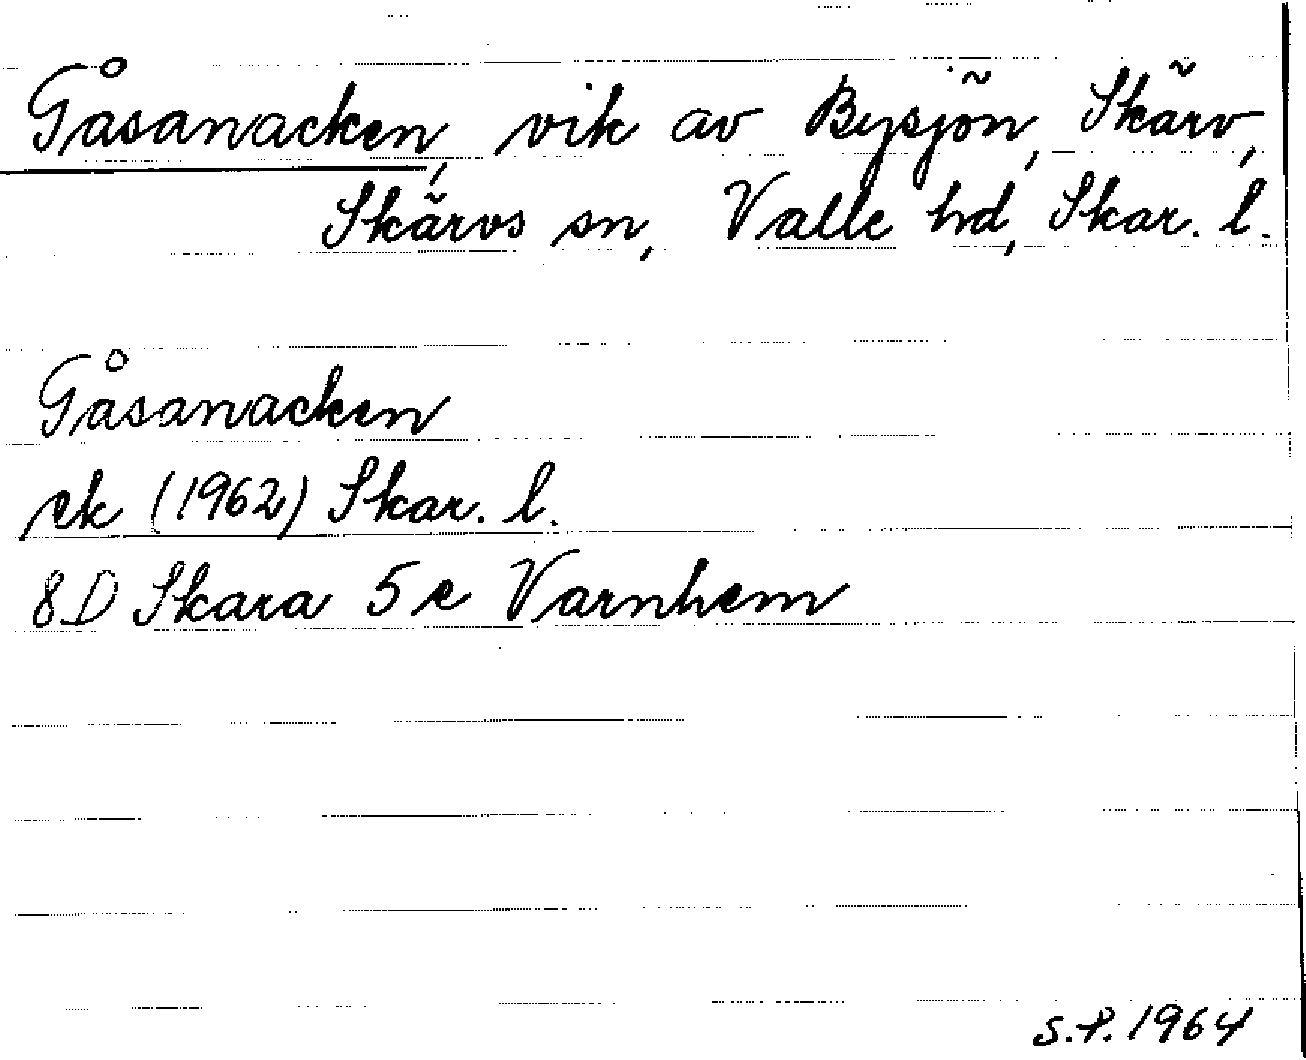 Gåsanacken, vik av Bysjön, Skärv,
Skärvs sn, Valle hd, Skar. l.
Gåsanacken
ek (1962) Skar. l.
8D Skara 5 e Varnhem
S.P. 1964